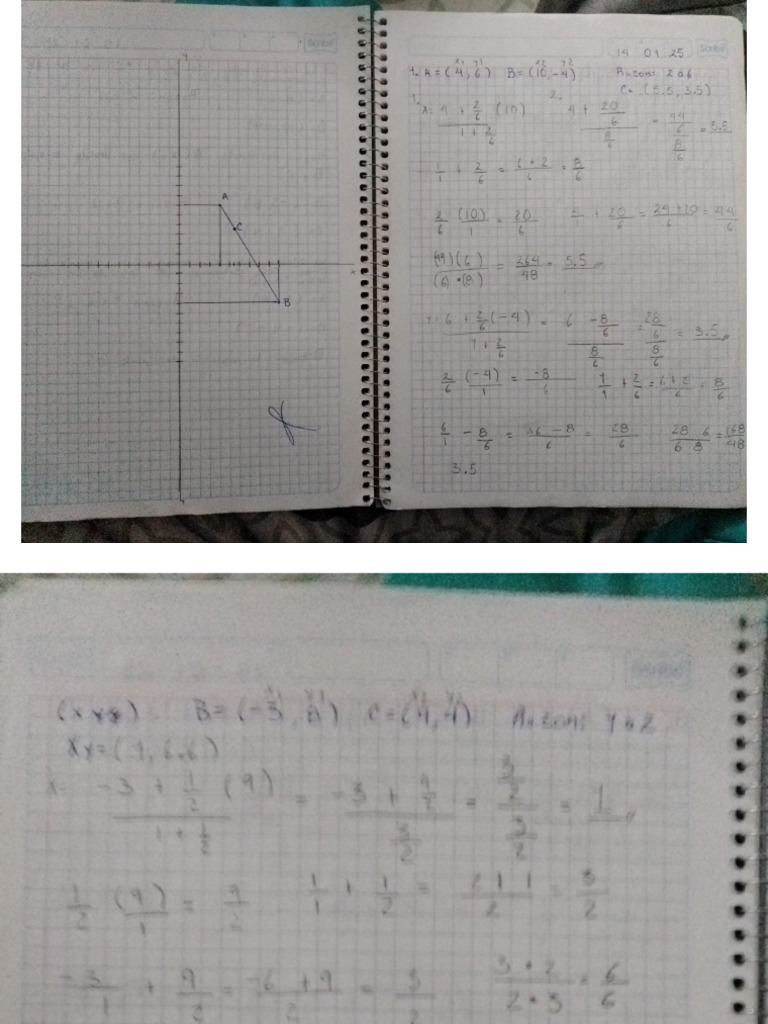 Y
A
C
X
B
Scribe
14 01 25
1. A = (4, 6) B = (10, -4) Razon: 2 a 6
x1 y1 x2 y2
C = (5.5, 3.5)
1. X = 4 + 2/6 (10) / 1 + 2/6 2. 4 + 20/6 / 8/6 = 44/6 / 8/6 = 3.5
1/1 + 2/6 = 6 + 2 / 6 = 8/6
2/6 (10)/1 = 20/6 4/1 + 20/6 = 24 + 20 / 6 = 44/6
(44)(6) / (6)•(8) = 264/48 = 5.5
Y = 6 + 2/6 (-4) / 1 + 2/6 = 6 -8/6 / 8/6 = 28/6 / 8/6 = 3.5
2/6 (-4)/1 = -8/6 1/1 + 2/6 = 6 + 2 / 6 = 8/6
6/1 - 8/6 = 36 - 8 / 6 = 28/6 28 6 / 6 8 = 168/48
3.5
B = (-3, ) C = ( , ) Razon: 1 a 2
= (1, 6.6)
X = -3 + 1/2 (9) / 1 + 1/2 = -3 + 9/2 / 3/2 = 3/2 / 3/2 = 1
1/2 (9)/1 = 9/2 1/1 + 1/2 = 2 + 1 / 2 = 3/2
-3/1 + 9/2 = -6 + 9 / 2 = 3/2 3 • 2 / 2 • 3 = 6/6